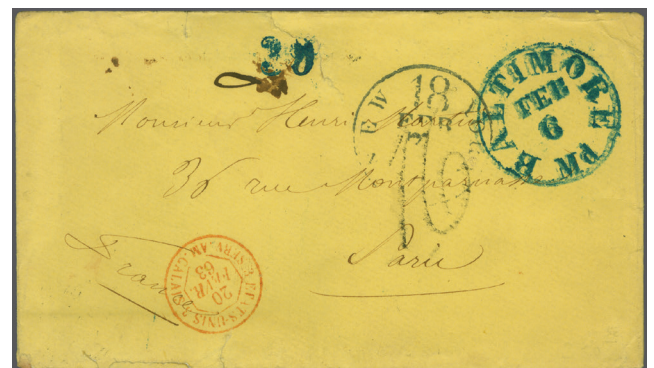 30
BALTIMORE
FEB
6
PM
NEW
18
FEB
Monsieur Henri
36 rue Montparnasse
Paris
France
ETATS-UNIS SERV. AM. CALAIS
20
FEVR
63